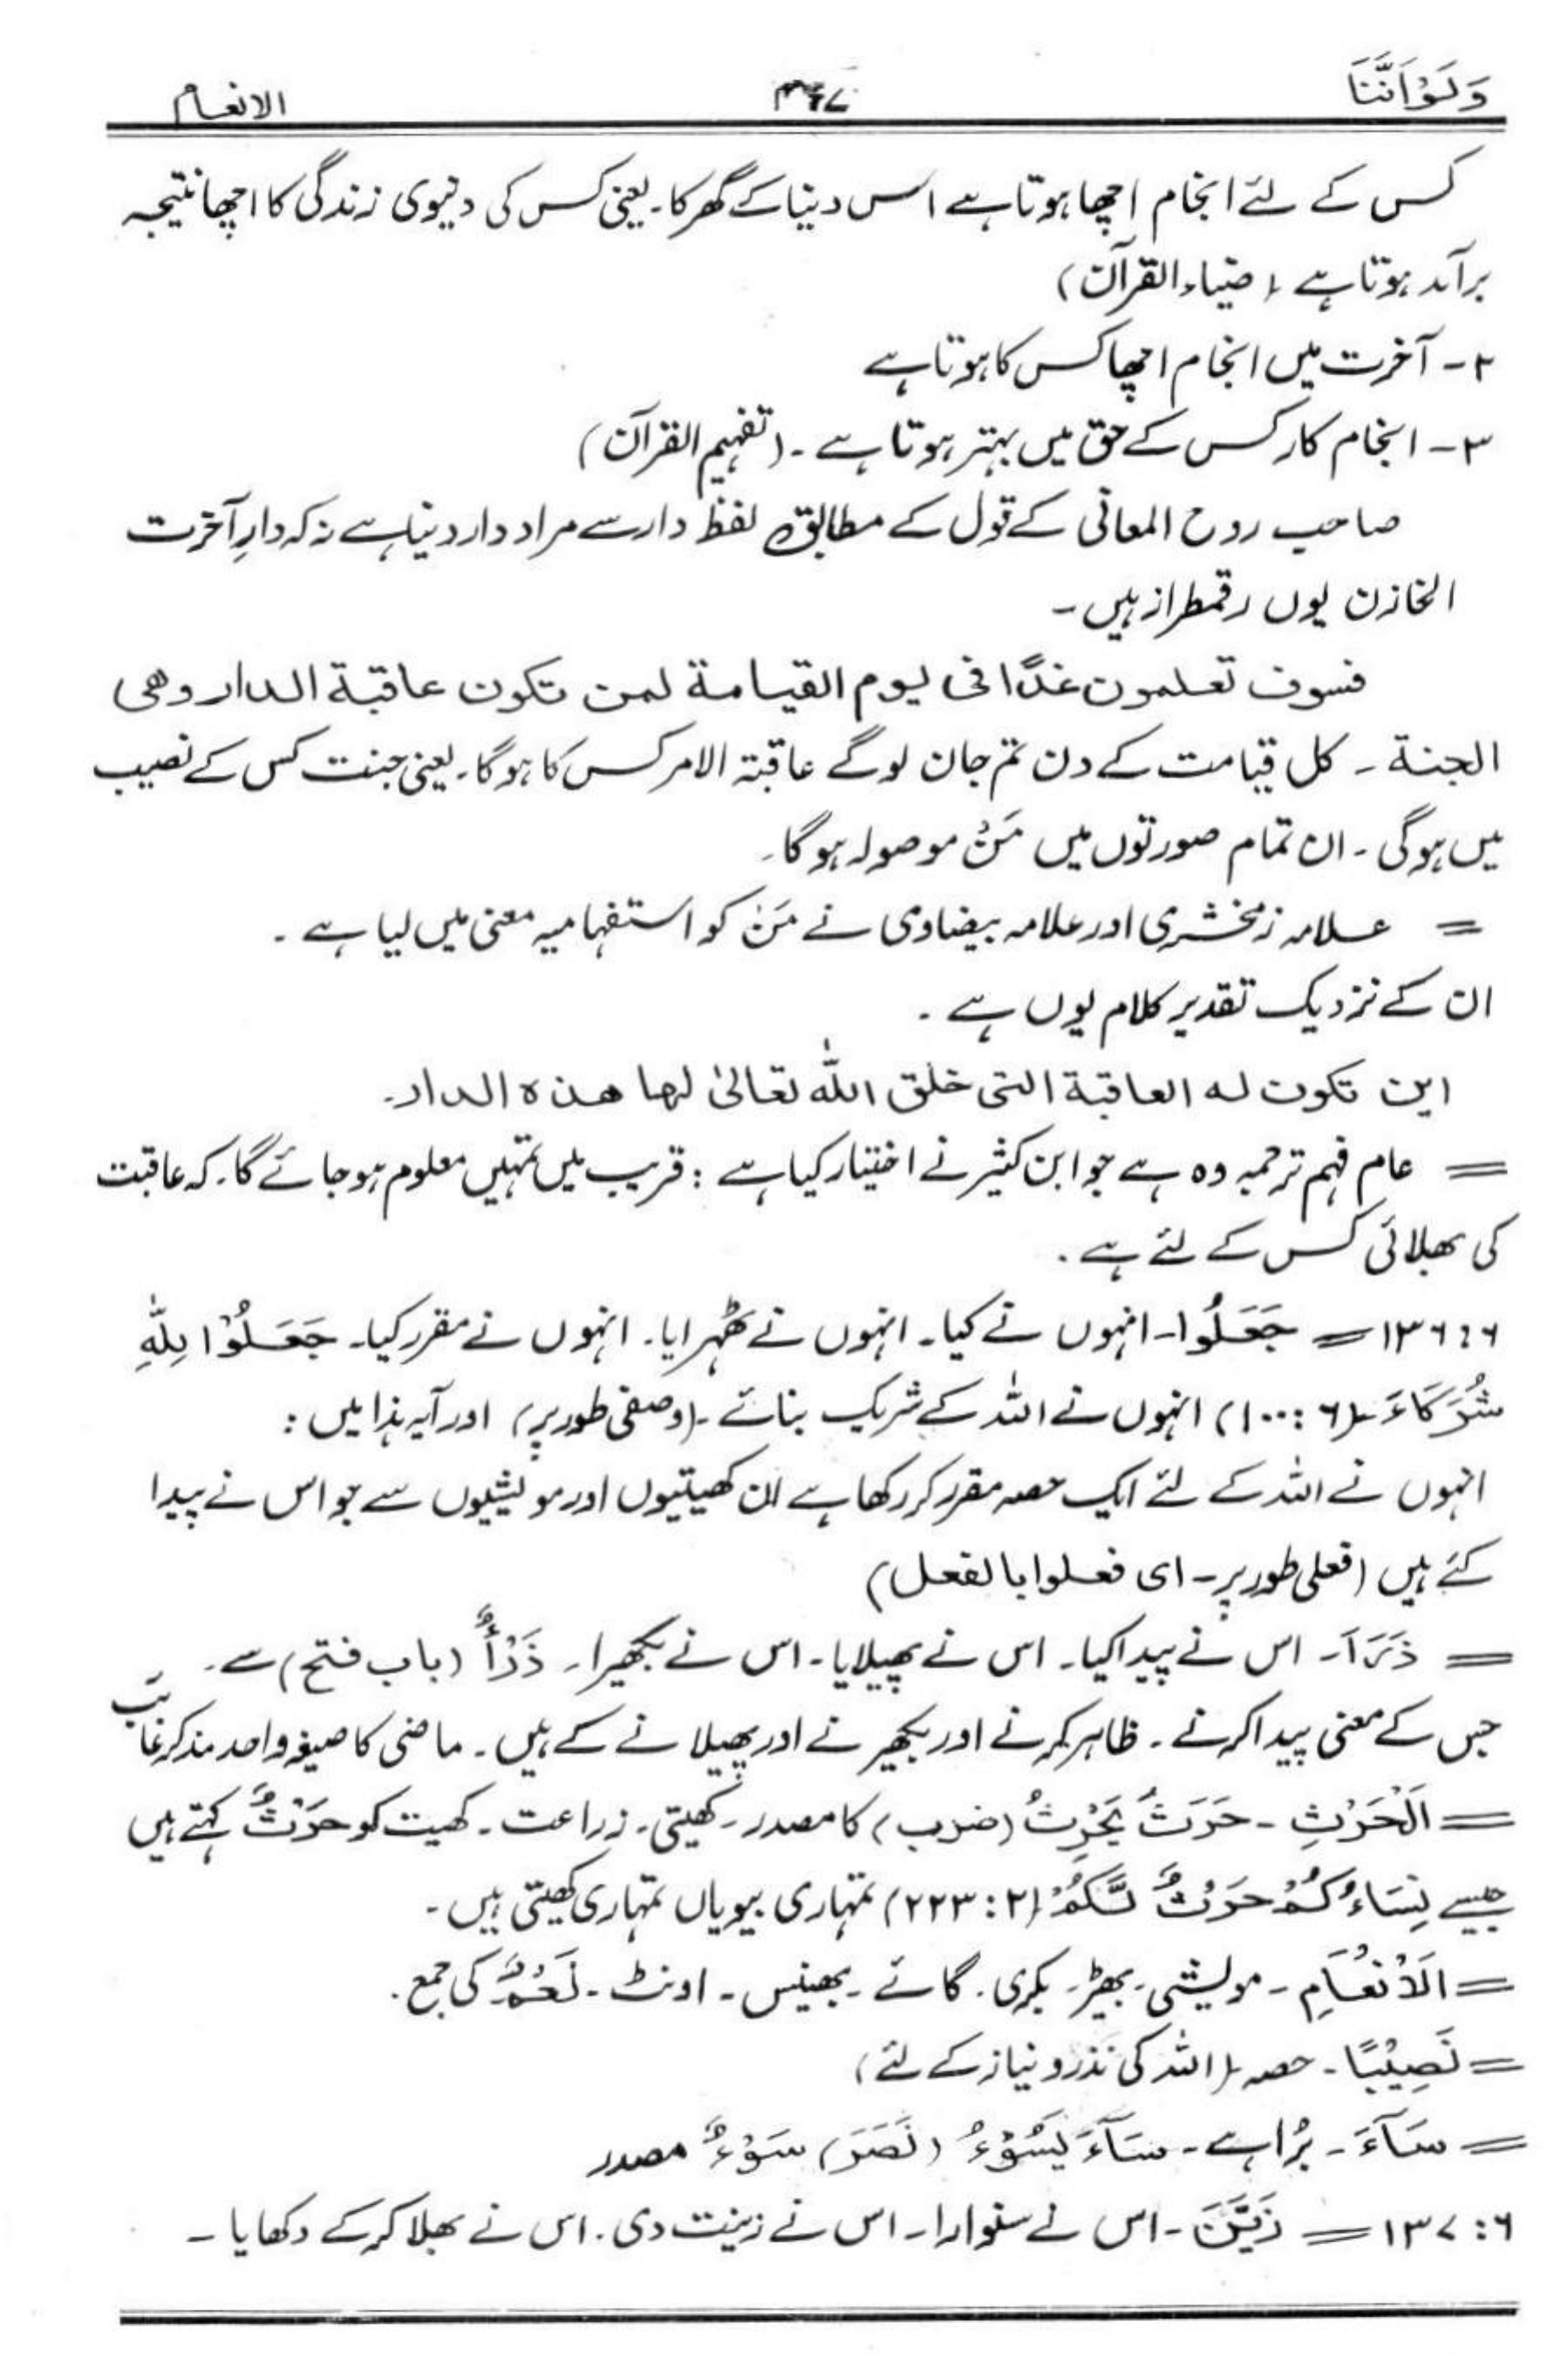 وَلَوْ اَنَّنَا
الانعام
کس کے لئے انجام اچھا ہوتا ہے اس دنیا کے گھر کا۔ یعنی کس کی دنیوی زندگی کا اچھا نتیجہ
برآمد ہوتا ہے (ضیاء القرآن)
۲۔ آخرت میں انجام اچھا کس کا ہوتا ہے
۳۔ انجام کار کس کے حق میں بہتر ہوتا ہے۔ (تفہیم القرآن)
صاحب روح المعانی کے قول کے مطابق لفظ دار سے مراد دار دنیا ہے نہ کہ دارِ آخرت
الخازن یوں رقمطراز ہیں۔
فسوف تعلمون غدًا فی یوم القیامة لمن تکون عاقبة الدار وھی
الجنة۔ کل قیامت کے دن تم جان لوگے عاقبۃ الامر کس کا ہوگا۔ یعنی جنت کس کے نصیب
میں ہوگی۔ ان تمام صورتوں میں مَنْ موصولہ ہوگا۔
= علامہ زمخشری اور علامہ بیضاوی نے مَنْ کو استفہامیہ معنی میں لیا ہے۔
ان کے نزدیک تقدیر کلام یوں ہے۔
این تکون لہ العاقبة التی خلق اللہ تعالیٰ لھا ھذہ الدار۔
= عام فہم ترجمہ وہ ہے جو ابن کثیر نے اختیار کیا ہے : قریب میں تمہیں معلوم ہو جائے گا۔ کہ عاقبت
کی بھلائی کس کے لئے ہے۔
۶:۱۳۶ = جَعَلُوا۔ انہوں نے کیا۔ انہوں نے ٹھہرایا۔ انہوں نے مقرر کیا۔ جَعَلُوْا لِلّٰہِ
شُرَکَاءَ (۶:۱۰۰) انہوں نے اللہ کے شریک بنائے۔ (وصفی طور پر) اور آیہ ہذا میں :
انہوں نے اللہ کے لئے ایک حصہ مقرر کر رکھا ہے ان کھیتیوں اور مویشیوں سے جو اس نے پیدا
کئے ہیں (فعلی طور پر۔ ای فعلوا بالفعل)
= ذَرَاَ۔ اس نے پیدا کیا۔ اس نے پھیلایا۔ اس نے بکھیرا۔ ذَرْأٌ (باب فتح) سے۔
جس کے معنی پیدا کرنے۔ ظاہر کرنے اور بکھیرنے اور پھیلانے کے ہیں۔ ماضی کا صیغہ واحد مذکر غائب
= اَلْحَرْثِ۔ حَرَثَ یَحْرِثُ (ضرب) کا مصدر۔ کھیتی۔ زراعت۔ کھیت کو حَرْثٌ کہتے ہیں
جیسے نِسَاءُکُمْ حَرْثٌ لَّکُمْ (۲:۲۲۳) تمہاری بیویاں تمہاری کھیتی ہیں۔
= اَلْاَنْعَامِ۔ مویشی۔ بھیڑ۔ بکری۔ گائے۔ بھینس۔ اونٹ۔ نَعَمٌ کی جمع۔
= نَصِیْبًا۔ حصہ (اللہ کی نذر و نیاز کے لئے)
= سَآءَ۔ بُرا ہے۔ سَآءَ یَسُوْءُ (نَصَرَ) سَوْءٌ مصدر
۶:۱۳۷ = زَیَّنَ۔ اس نے سنوارا۔ اس نے زینت دی۔ اس نے بھلا کرکے دکھایا۔